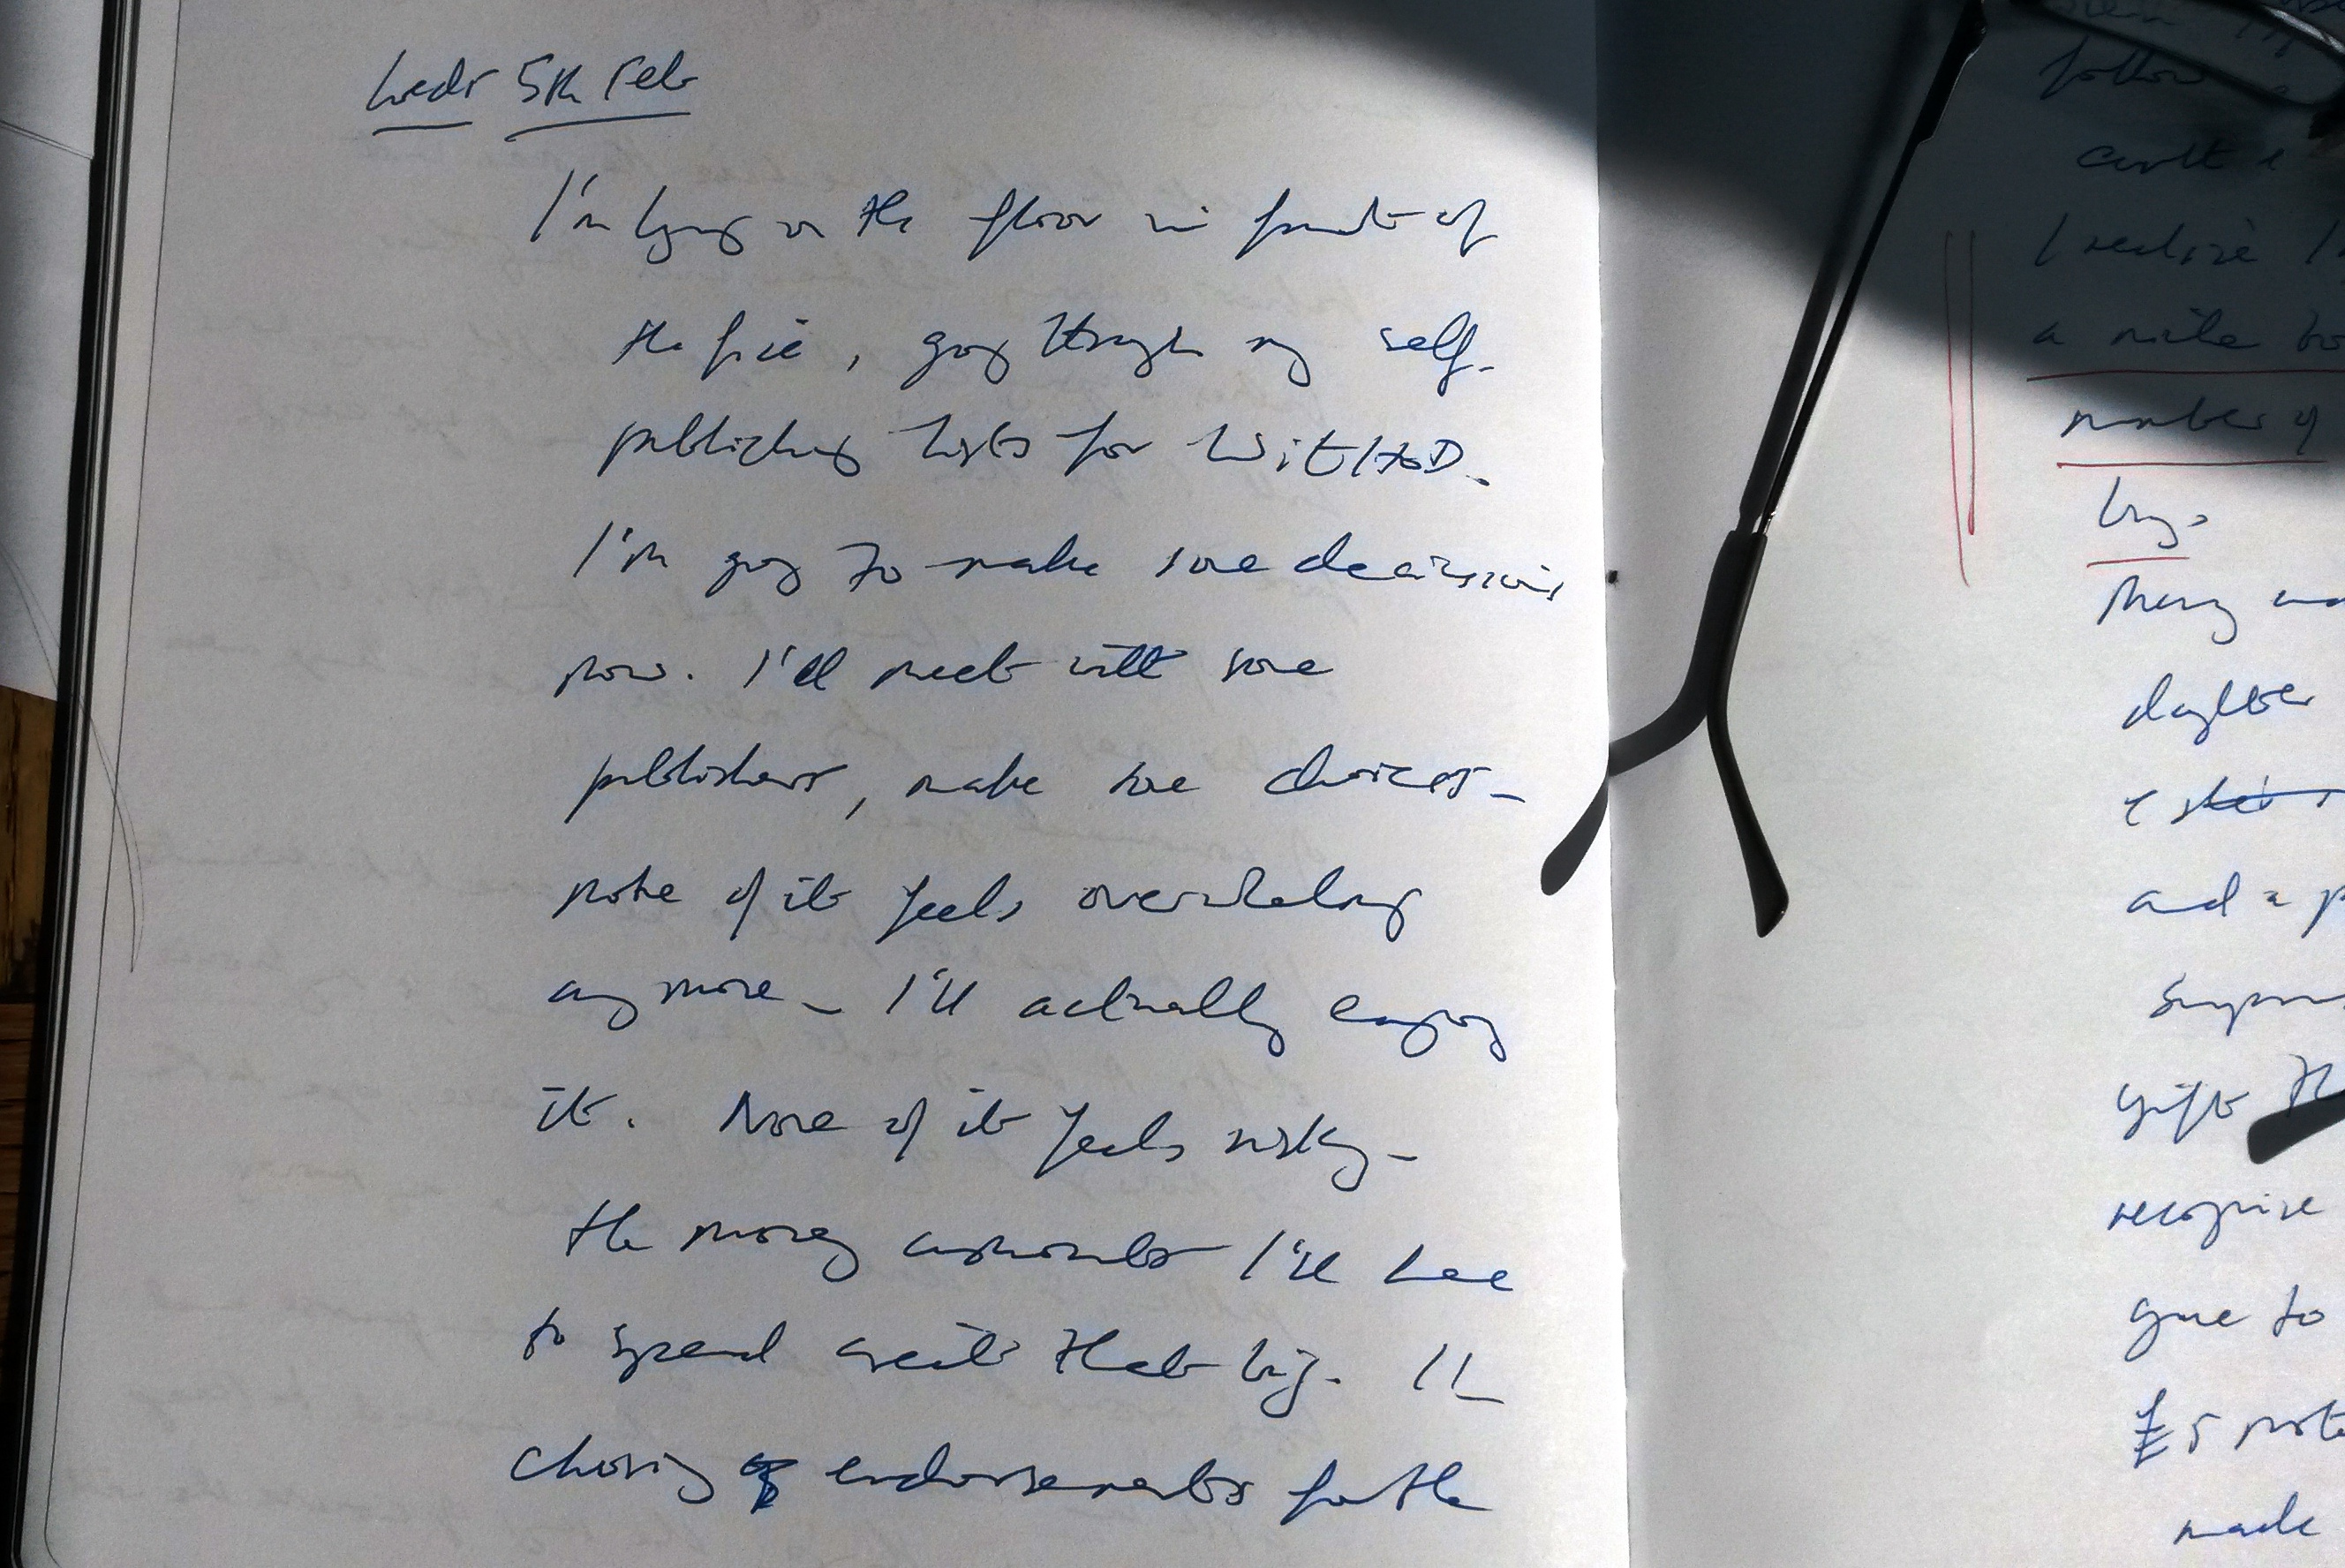 Weds 5th Feb
I'm lying on the floor in front of
the fire, going through my self-
publishing lists for WitHoD.
I'm going to make some decisions
now. I'll meet with some
publishers, make some choices –
none of it feels overwhelming
any more – I'll actually enjoy
it. None of it feels risky –
the money amounts I'll have
to spend aren't that big. I'll
chasing endorsements for the
follow
I realise I
a mile
number of
daughter
and a
gift
recognise
gave to
£5 note
made